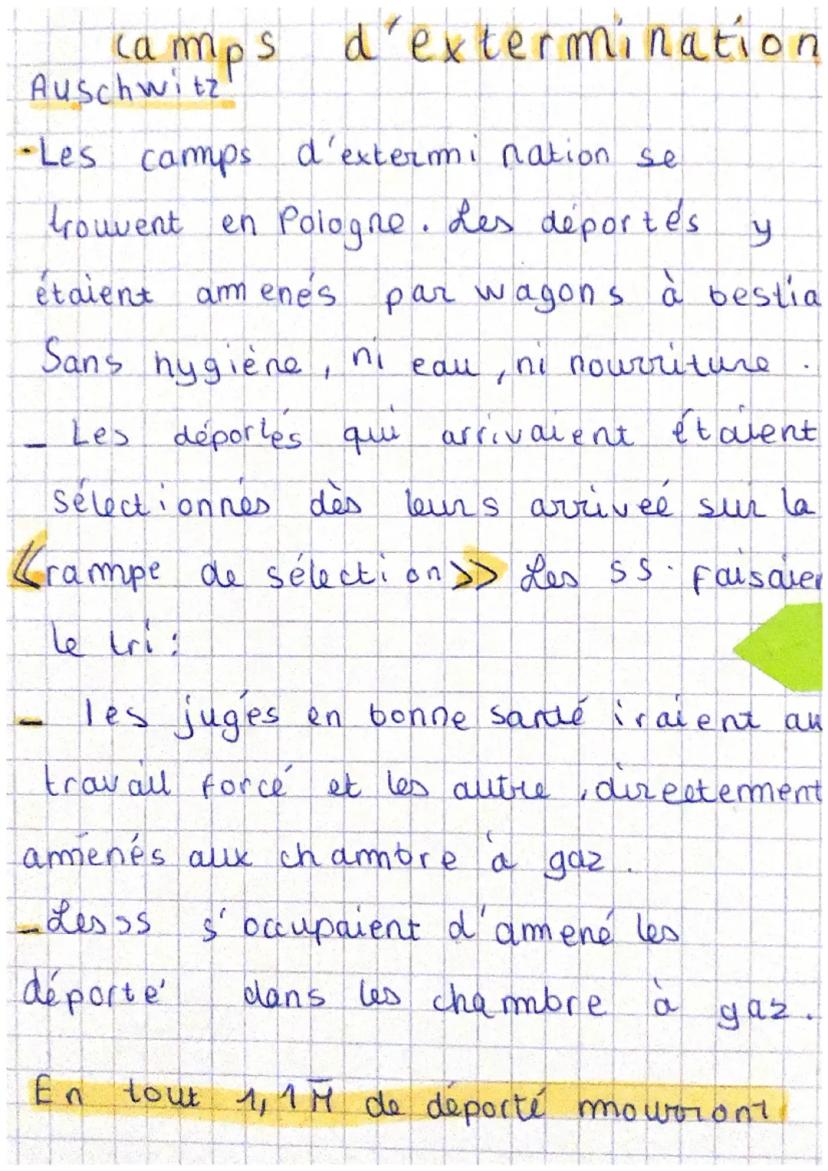 camps d'extermination
Auschwitz
-Les camps d'extermination se
trouvent en Pologne. Les déportés y
étaient amenés par wagons à bestia
Sans hygiène, ni eau, ni nourriture.
- Les déportés qui arrivaient étaient
sélectionnés dès leurs arriveé sur la
«rampe de sélection» Les SS. faisaien
le tri:
- les jugés en bonne santé iraient au
travail forcé et les autre, directement
amenés aux chambre à gaz.
- Les ss s'occupaient d'amené les
déporté dans les chambre à gaz.
En tout 1,1M de déporté mourront